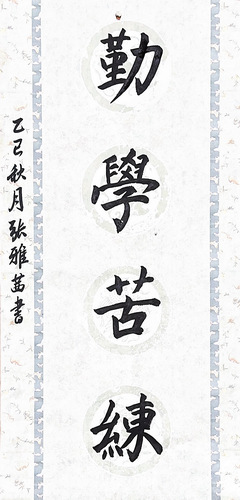 勤學苦練
乙巳秋月張雅茁書